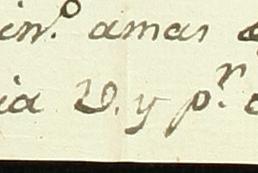 in.º amas
ia V. y p.r